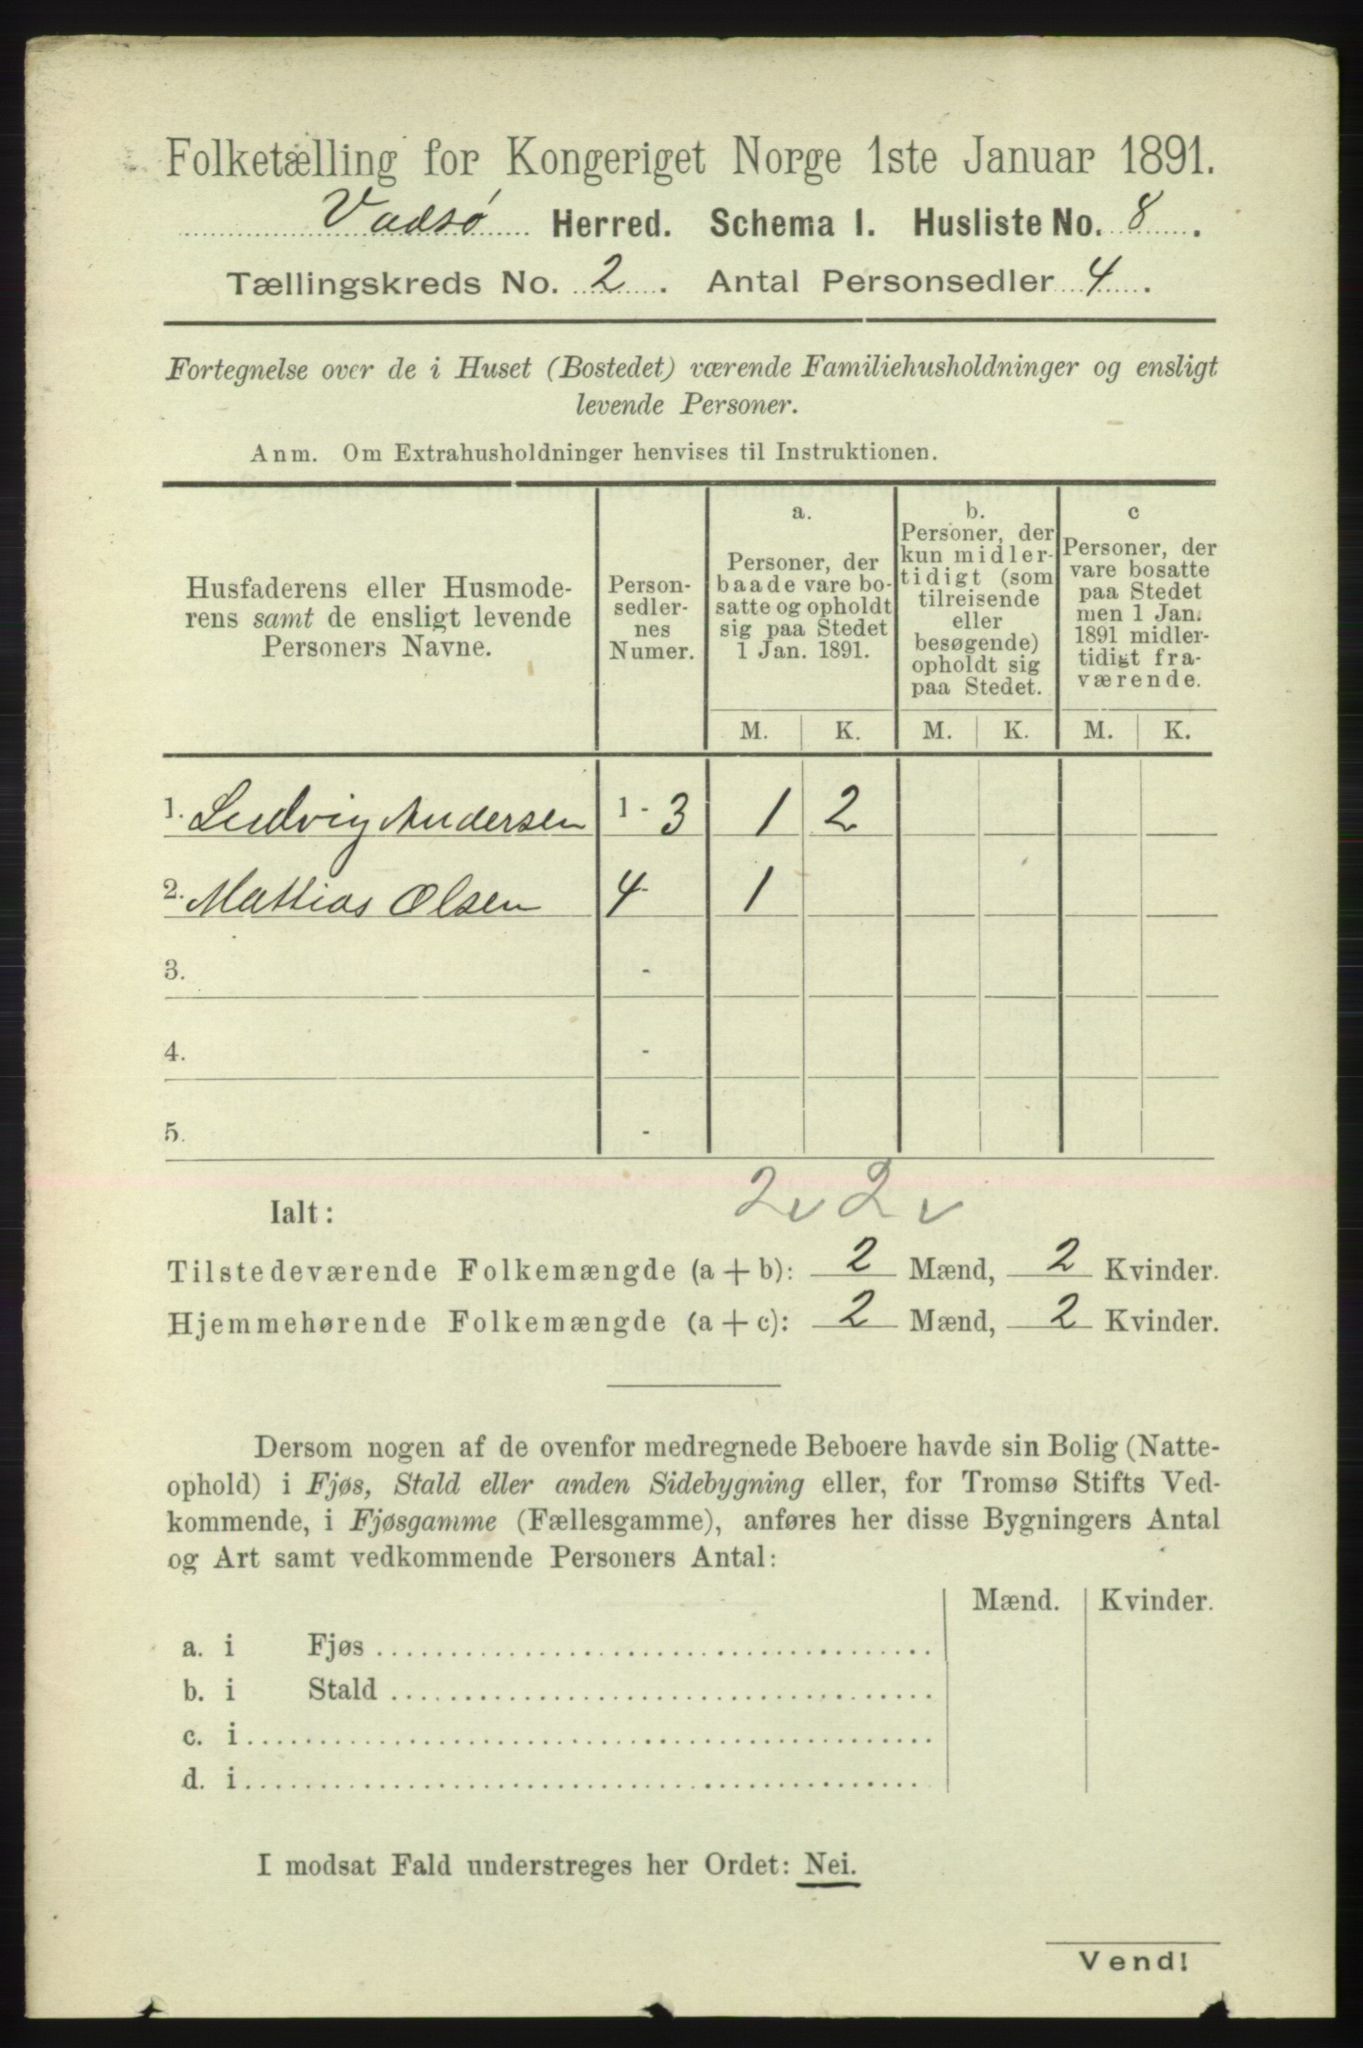 Folketælling for Kongeriget Norge 1ste Januar 1891.
Vadsø Herred. Schema I. Husliste No. 8.
Tællingskreds No. 2. Antal Personsedler 4.
Fortegnelse over de i Huset (Bostedet) værende Familiehusholdninger og ensligt
levende Personer.
Anm. Om Extrahusholdninger henvises til Instruktionen.
Husfaderens eller Husmode-
rens samt de ensligt levende
Personers Navne.
Person-
sedler-
nes
Numer.
a.
Personer, der
baade vare bo-
satte og opholdt
sig paa Stedet
1 Jan. 1891.
b.
Personer, der
kun midler-
tidigt (som
tilreisende
eller
besøgende)
opholdt sig
paa Stedet.
c
Personer, der
vare bosatte
paa Stedet
men 1 Jan.
1891 midler-
tidigt fra-
værende.
M. K. M. K. M. K.
1. Ludvig Andersen 1 - 3 1 2
2. Mattias Olsen 4 - 1
3. -
4. -
5. -
2 v 2 v
Ialt:
Tilstedeværende Folkemængde (a + b): 2 Mænd, 2 Kvinder.
Hjemmehørende Folkemængde (a + c): 2 Mænd, 2 Kvinder.
Dersom nogen af de ovenfor medregnede Beboere havde sin Bolig (Natte-
ophold) i Fjøs, Stald eller anden Sidebygning eller, for Tromsø Stifts Ved-
kommende, i Fjøsgamme (Fællesgamme), anføres her disse Bygningers Antal
og Art samt vedkommende Personers Antal:
Mænd. Kvinder.
a. i Fjøs
b. i Stald
c. i
d. i
I modsat Fald understreges her Ordet: Nei.
Vend!